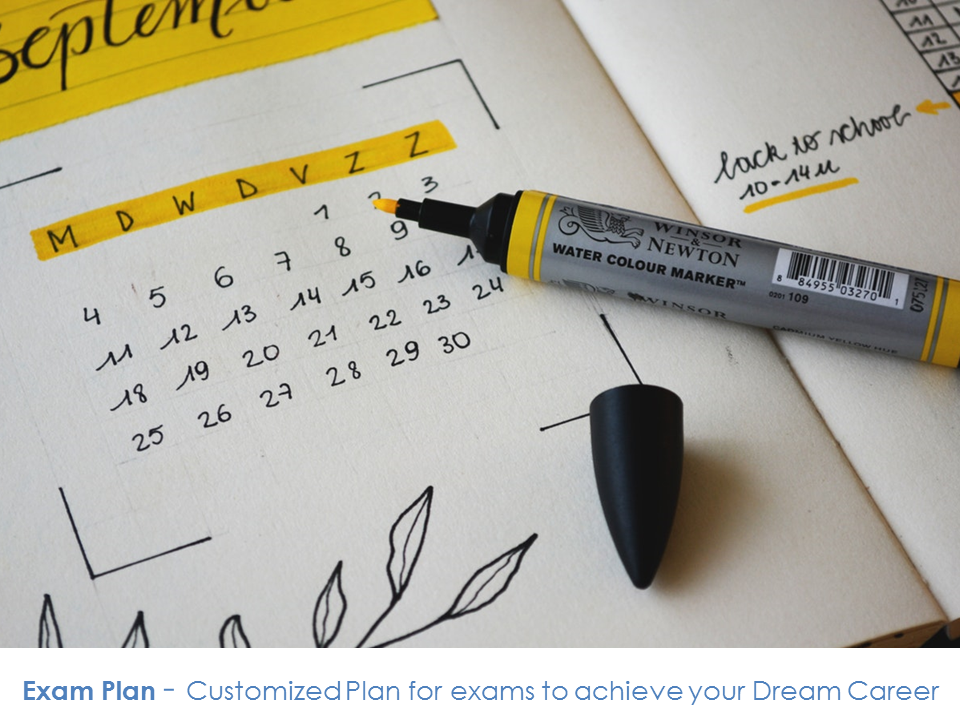 September
M D W D V Z Z
1 2 3
4 5 6 7 8 9
11 12 13 14 15 16
18 19 20 21 22 23 24
25 26 27 28 29 30
10
11
12
13
back to school
10-14u
WINSOR
&
NEWTON
WATER COLOUR MARKER™
WINSOR
8 84955 03270 1
0201 109
CADMIUM YELLOW HUE
Exam Plan - Customized Plan for exams to achieve your Dream Career